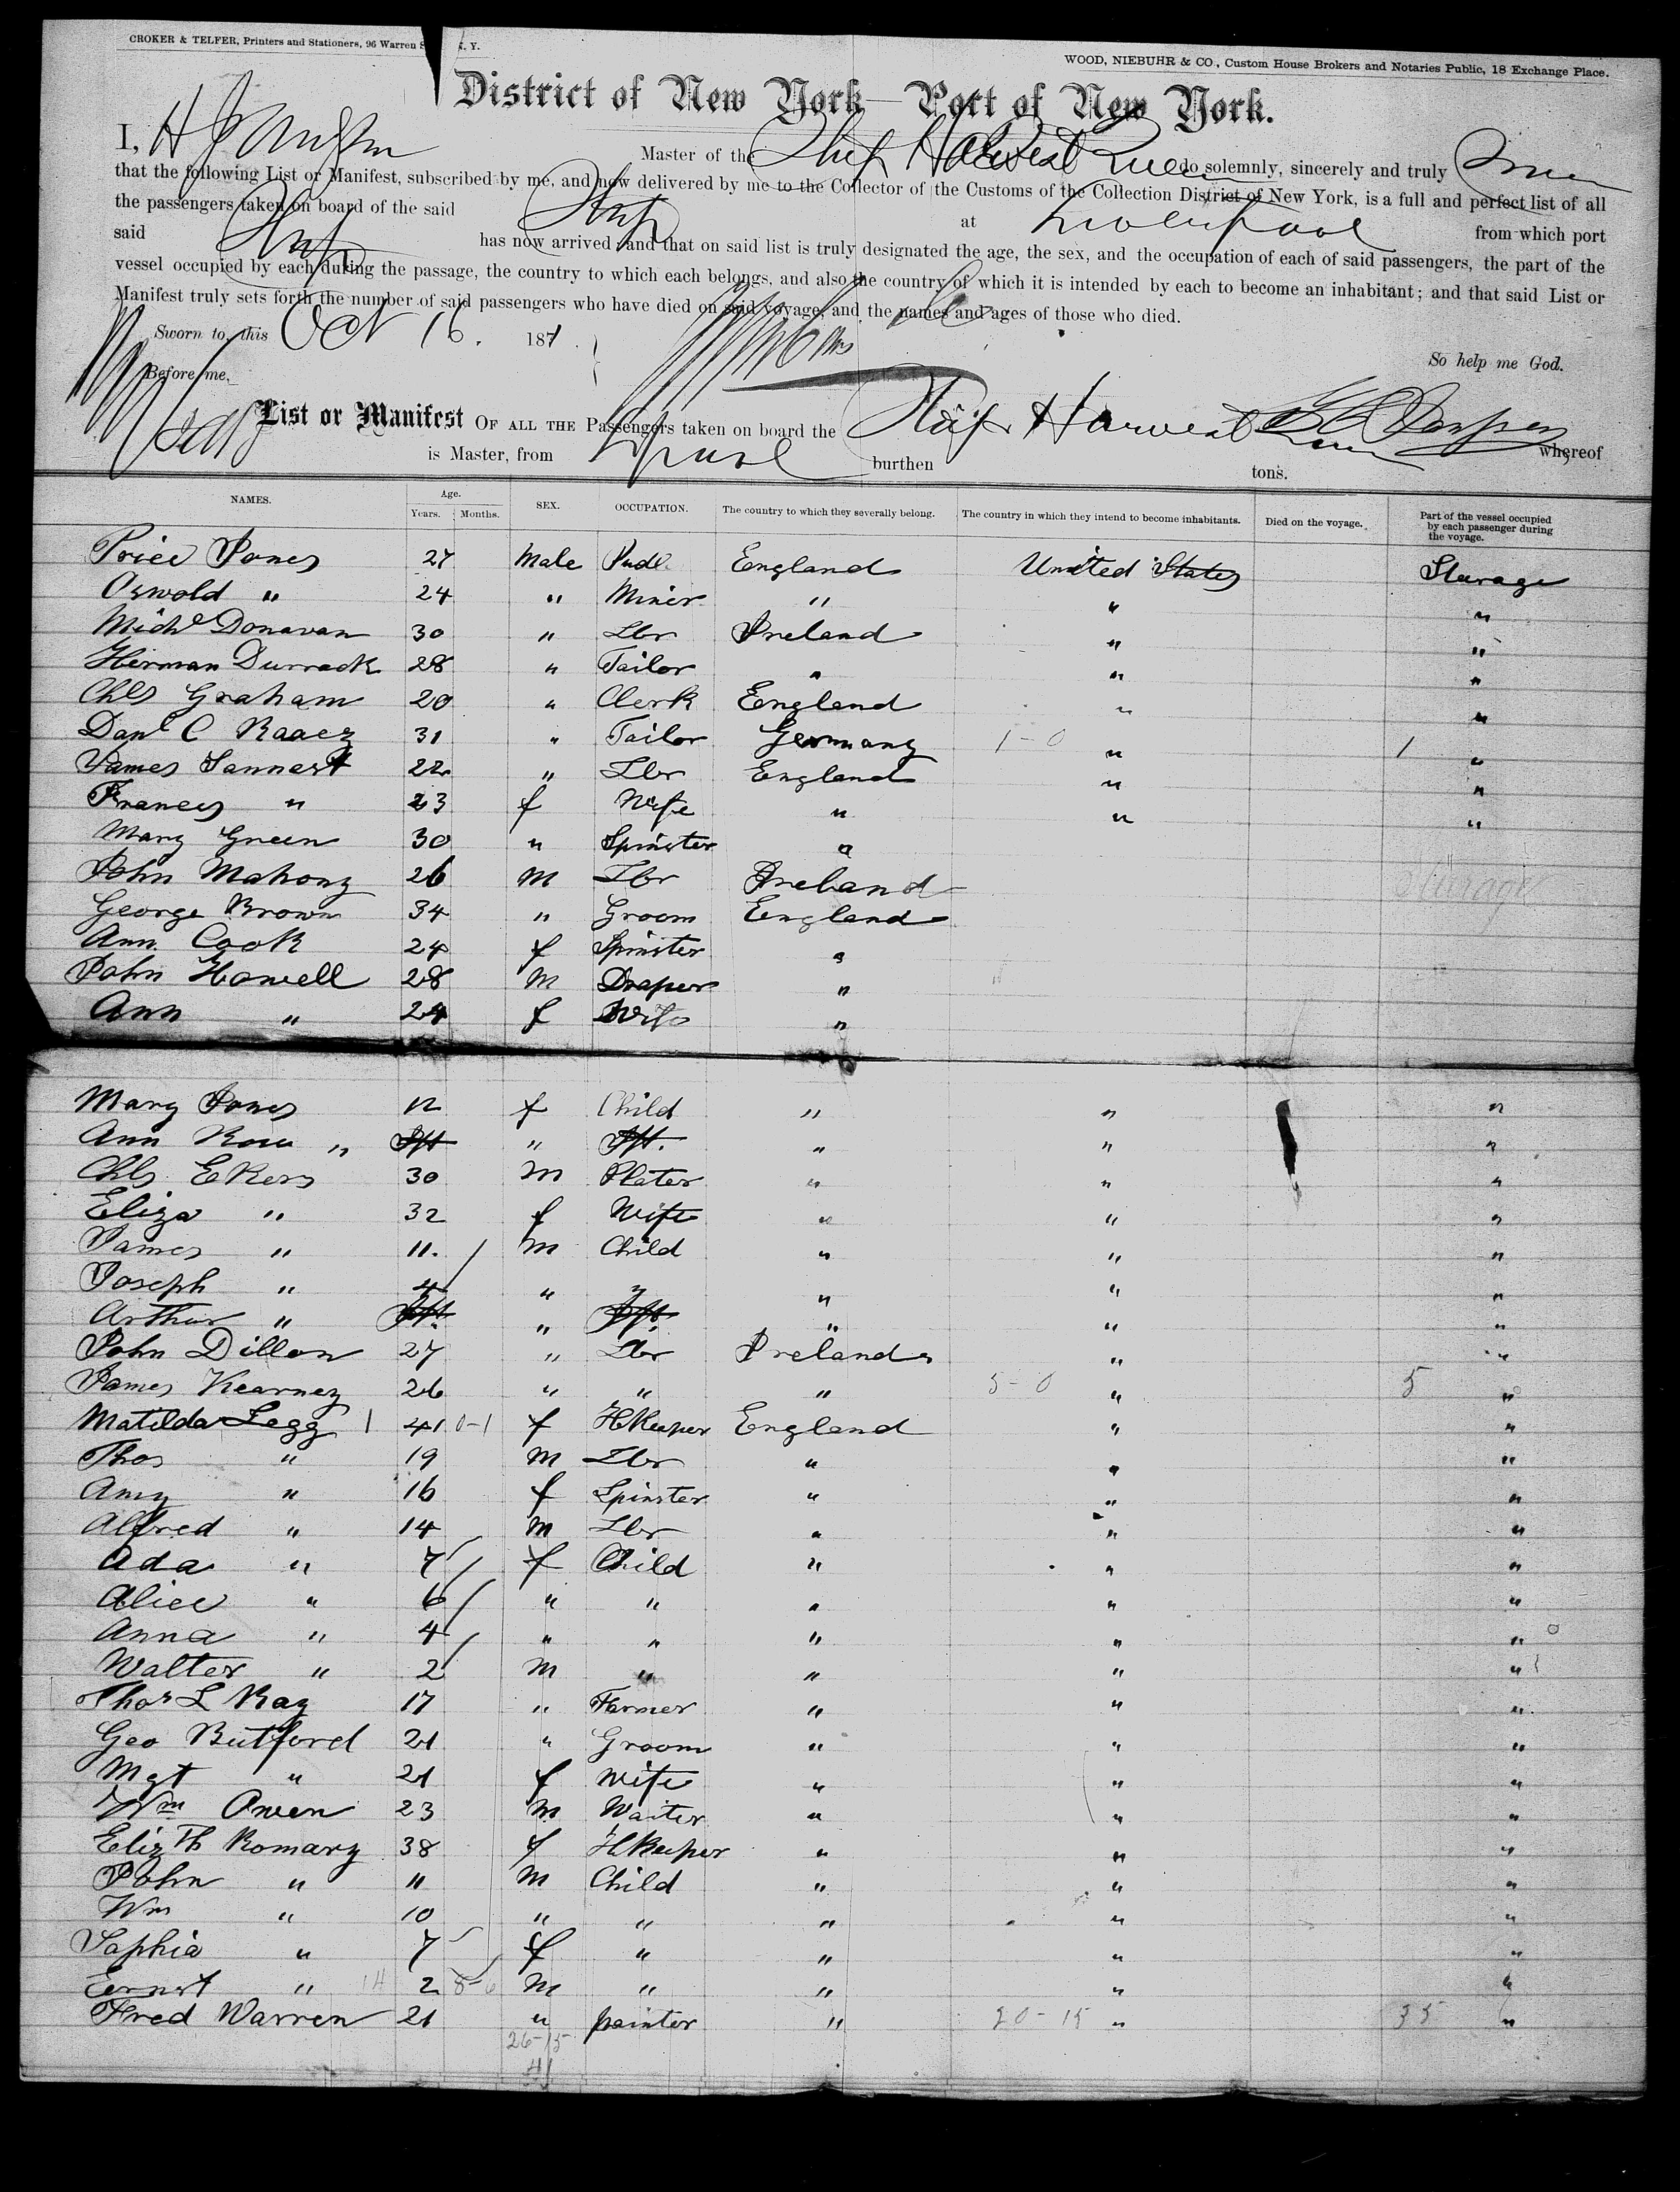 CROKER & TELFER, Printers and Stationers, 96 Warren S N. Y.
WOOD, NIEBUHR & CO., Custom House Brokers and Notaries Public, 18 Exchange Place.
District of New York—Port of New York.
I, H J Master of the Ship Harvest Queen do solemnly, sincerely and truly
that the following List or Manifest, subscribed by me, and now delivered by me to the Collector of the Customs of the Collection District of New York, is a full and perfect list of all
the passengers taken on board of the said Ship at Liverpool from which port
said Ship has now arrived; and that on said list is truly designated the age, the sex, and the occupation of each of said passengers, the part of the
vessel occupied by each during the passage, the country to which each belongs, and also the country of which it is intended by each to become an inhabitant; and that said List or
Manifest truly sets forth the number of said passengers who have died on said voyage, and the names and ages of those who died.
Sworn to, this Oct 16. 1871.
So help me God.
Before me,
List or Manifest OF ALL THE Passengers taken on board the Ship Harvest Queen whereof
is Master, from Lpool burthen tons.
NAMES. Age. Years. Months. SEX. OCCUPATION. The country to which they severally belong. The country in which they intend to become inhabitants. Died on the voyage. Part of the vessel occupied by each passenger during the voyage.
Price Jones 27 Male Pudl England United States Sterage
Oswold " 24 " Miner " " "
Michl Donavan 30 " Lbr Ireland " "
Herman Durrack 28 " Tailor " " "
Chls Graham 20 " Clerk England " "
Danl C Raaez 31 " Tailor Germany 1-0 " 1 "
James Sannert 22 " Lbr England " "
Frances " 23 f Wife " " "
Mary Green 30 " Spinster "
John Mahony 26 M Lbr Ireland Sturage
George Brown 34 " Groom England
Ann Cook 24 f Spinster "
John Howell 28 M Draper "
Ann " 24 f Wife "
Mary Jones 12 f Child " " "
Ann Rosu " Ift " Ift. " " "
Chls Ekers 30 M Plater " " "
Eliza " 32 f Wife " " "
James " 11. M Child " " "
Joseph " 4 " " " " "
Arthur " Ift. " Ift. " " "
John Dillon 27 " Lbr Ireland " "
James Kearney 26 " " " 5-0 " 5 "
Matilda Legg 1 41 0-1 f HKeeper England " "
Thos " 19 M Lbr " " "
Amy " 16 f Spinster " " "
Alfred " 14 M Lbr " " "
Ada " 7 f Child " " "
Alice " 6 " " " " "
Anna " 4 " " " " "
Walter " 2 M " " " "
Thos L Ray 17 " Farmer " " "
Geo Butford 21 " Groom " " "
Mgt " 21 f Wife " " "
Wm Owen 23 M Waiter " " "
Elizth Romary 38 f HKeeper " " "
John " 11 M Child " " "
Wm " 10 " " " " "
Saphia " 7 f " " " "
Ernst " 14 2 8-6 M " " " "
Fred Warren 21 " painter " 20-15 " 35 "
26-15
41